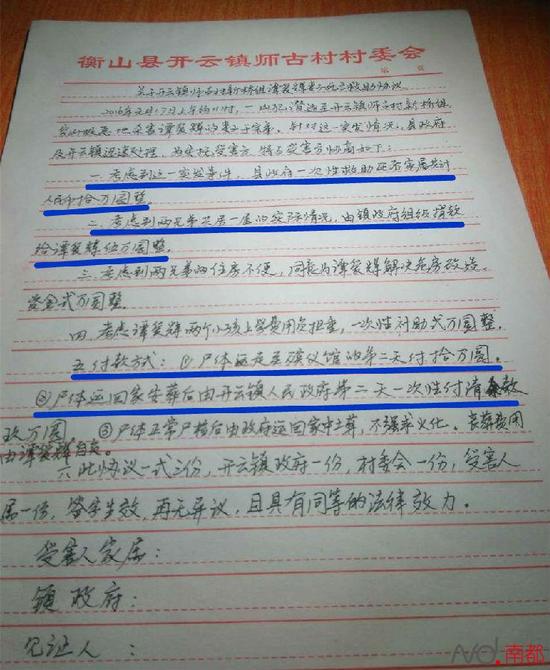 衡山县开云镇师古村村委会
第 页
关于开云镇师古村新桥组谭爱辉妻子死亡救助协议
2016年元月17日上午约11时，一凶犯潜逃至开云镇师古村新桥组
地杀害谭爱辉的妻子。针对这一突发情况，县政府
及开云镇迅速处理，为安抚受害方，特与受害方协商如下：
一、考虑到这一突发事件，县政府一次性救助死者家属共计
人民币拾万圆整
二、考虑到两兄弟共居一屋的实际情况，由镇政府组织捐款
给谭爱辉伍万圆整。
三、考虑到两兄弟的住房不便，同意为谭爱辉解决危房改造，
资金弍万圆整。
四、考虑谭爱辉两个小孩上学费用负担重，一次性补助弍万圆整。
五、付款方式：①尸体运走至殡仪馆的第二天付拾万圆。
②尸体运回家安葬后由开云镇人民政府第二天一次性付清余款
玖万圆 ③尸体正常尸检后由政府运回家中土葬，不强求火化。丧葬费用
由谭爱辉自负。
六、此协议一式三份，开云镇政府一份，村委会一份，受害人
属一份，签字生效，再无异议，且具有同等的法律效力。
受害人家属：
镇政府：
见证人：
南都